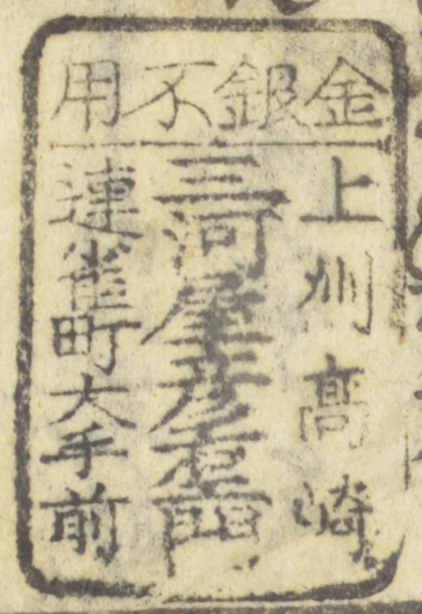 金銀不用
上州高崎
三河屋彦右衛門
連雀町大手前